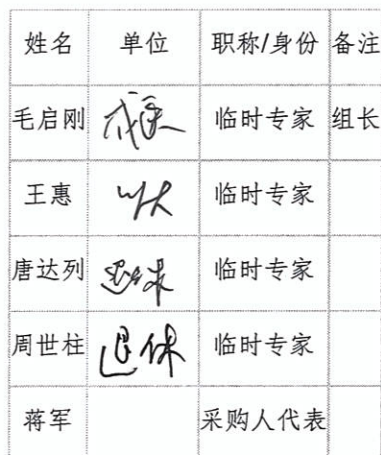 姓名 单位 职称/身份 备注
毛启刚 成医 临时专家 组长
王惠 川大 临时专家
唐达列 退休 临时专家
周世柱 退休 临时专家
蒋军 采购人代表